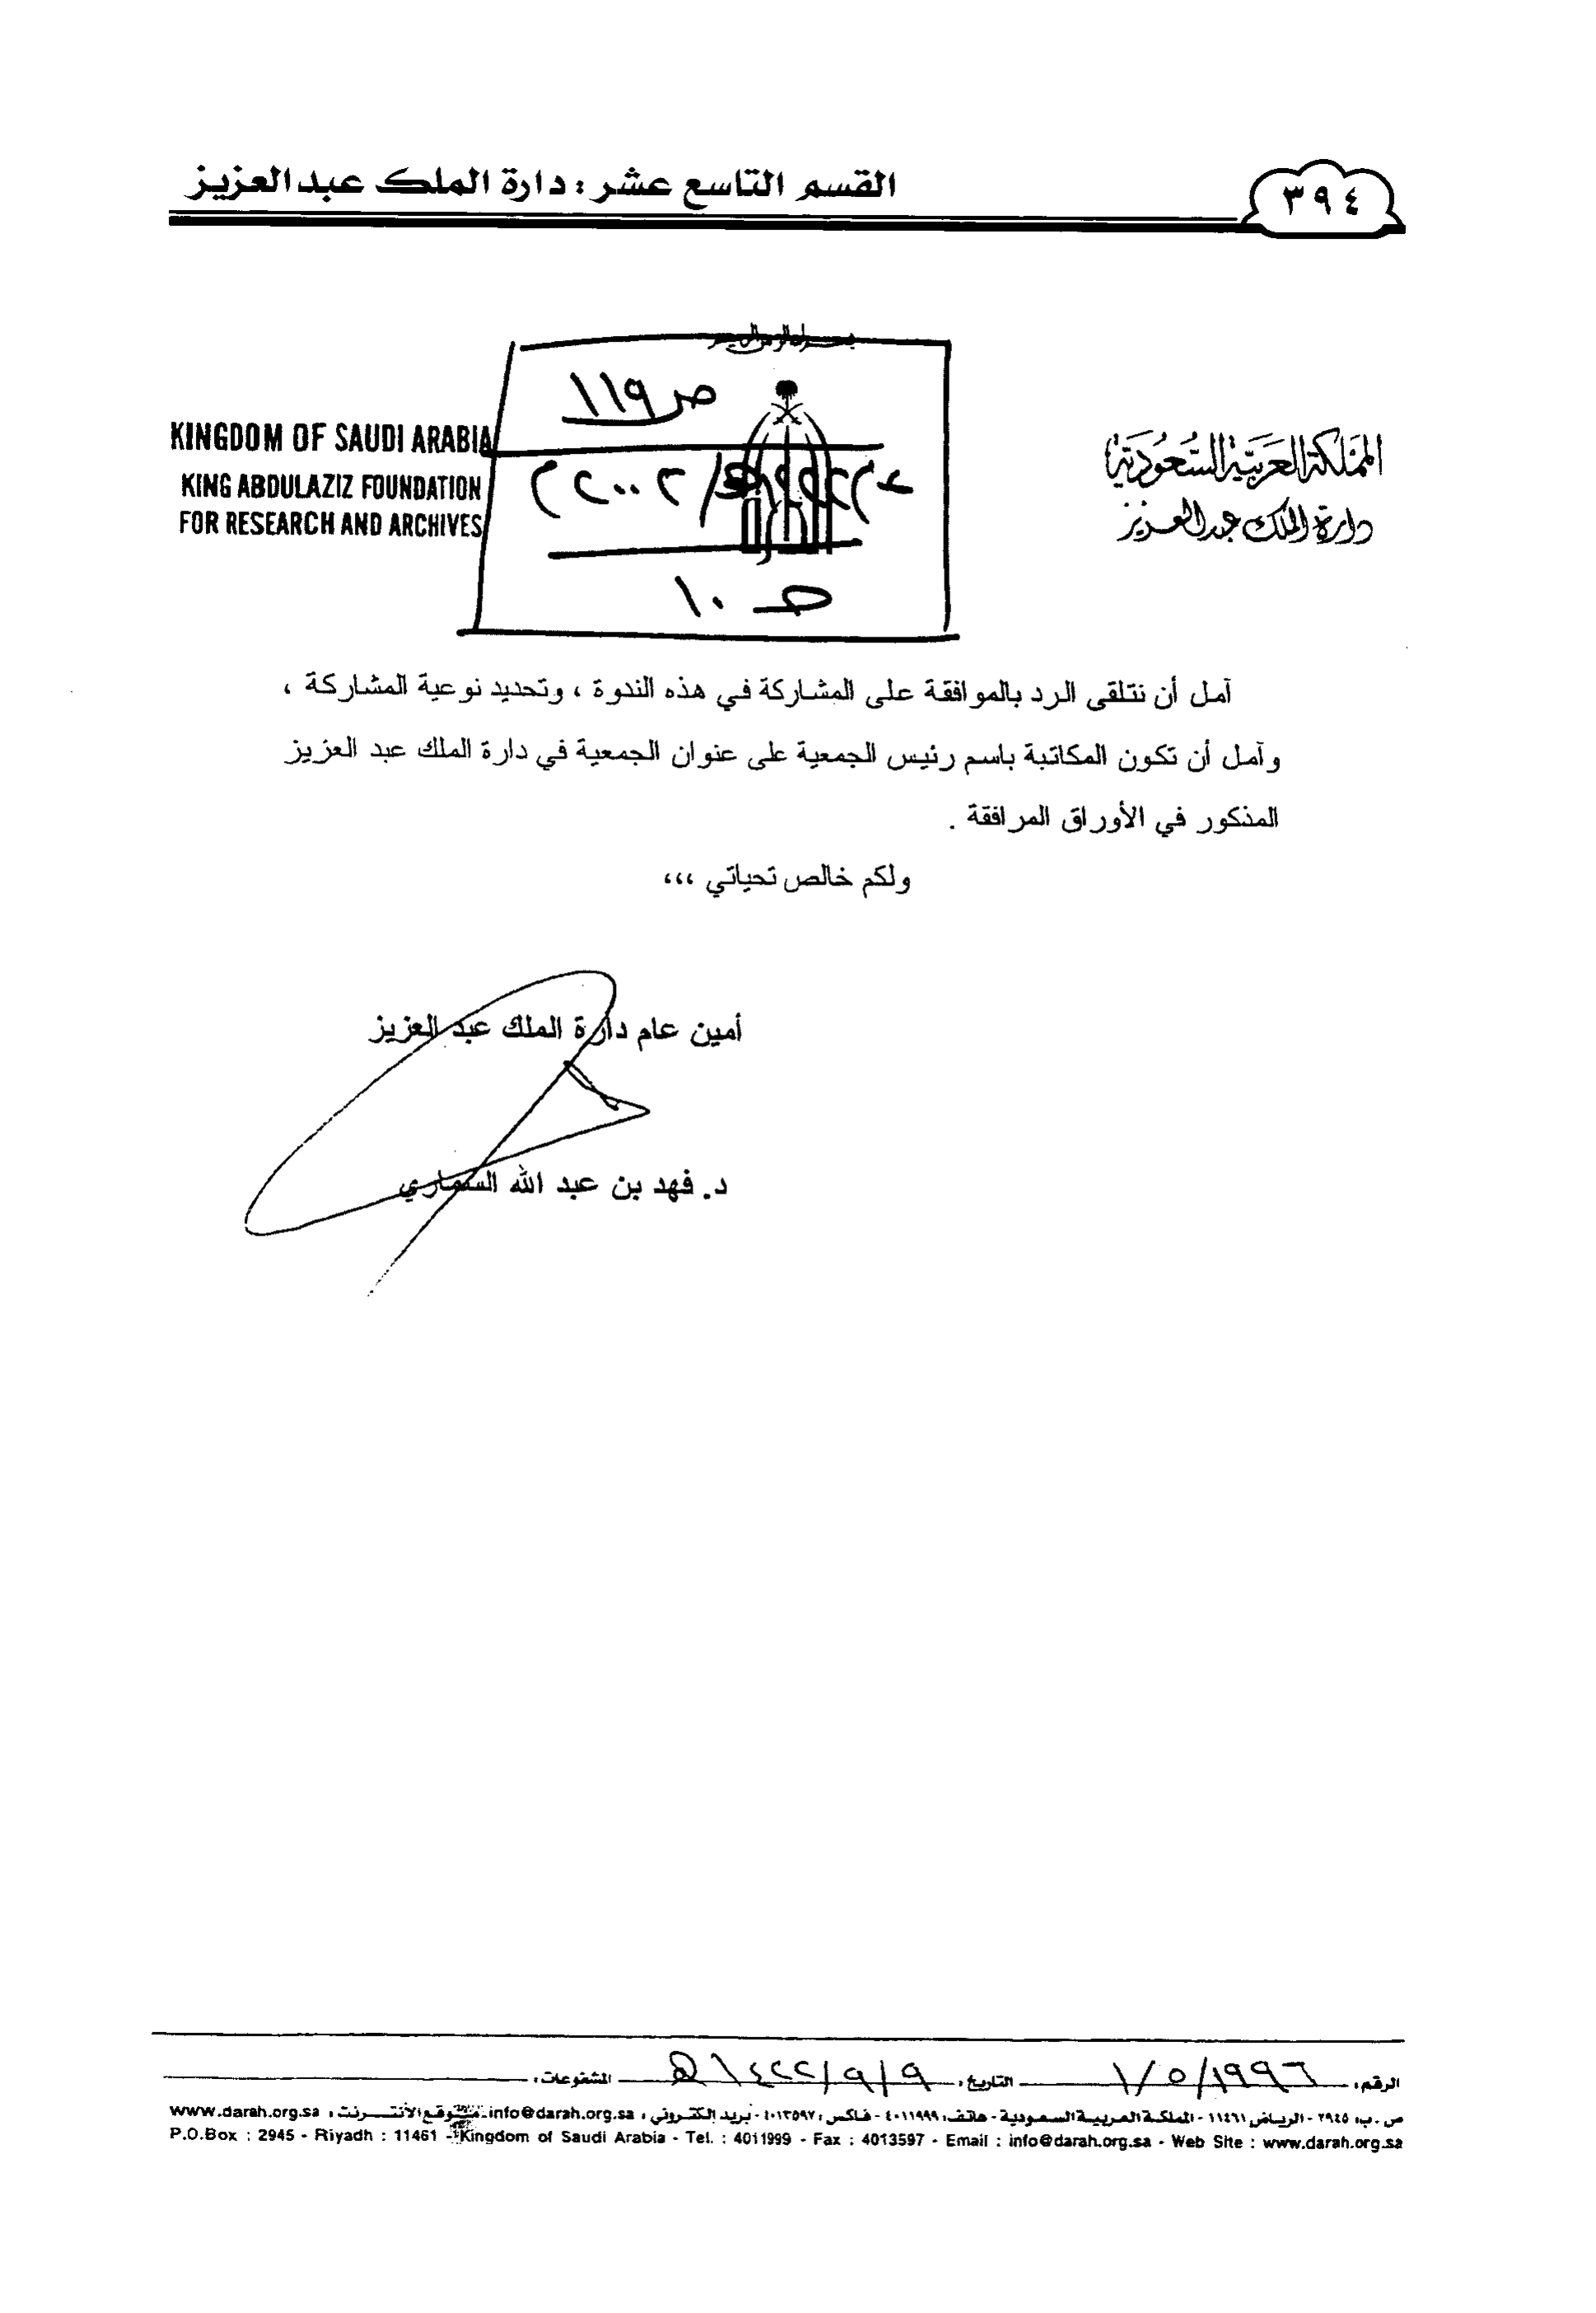 ٣٩٤
القسم التاسع عشر : دارة الملك عبدالعزيز
بسم الله الرحمن الرحيم
المملكة العربية السعودية
دارة الملك عبد العزيز
KINGDOM OF SAUDI ARABIA
KING ABDULAZIZ FOUNDATION
FOR RESEARCH AND ARCHIVES
ص ١١٩
ص ١٠
آمل أن نتلقى الرد بالموافقة على المشاركة في هذه الندوة ، وتحديد نوعية المشاركة ،
وآمل أن تكون المكاتبة باسم رئيس الجمعية على عنوان الجمعية في دارة الملك عبد العزيز
المذكور في الأوراق المرافقة .
ولكم خالص تحياتي ،،،
أمين عام دارة الملك عبد العزيز
د. فهد بن عبد الله السماري
الرقم : ١/٥/١٩٩٦ التاريخ : ٩/٩/١٤٢٢هـ المشفوعات :
ص.ب: ٢٩٤٥ - الرياض ١١٤٦١ - المملكة العربية السعودية - هاتف: ٤٠١١٩٩٩ - فاكس : ٤٠١٣٥٩٧ - بريد الكتروني : info@darah.org.sa - موقع الأنترنت : www.darah.org.sa
P.O.Box : 2945 - Riyadh : 11461 - Kingdom of Saudi Arabia - Tel. : 4011999 - Fax : 4013597 - Email : info@darah.org.sa - Web Site : www.darah.org.sa